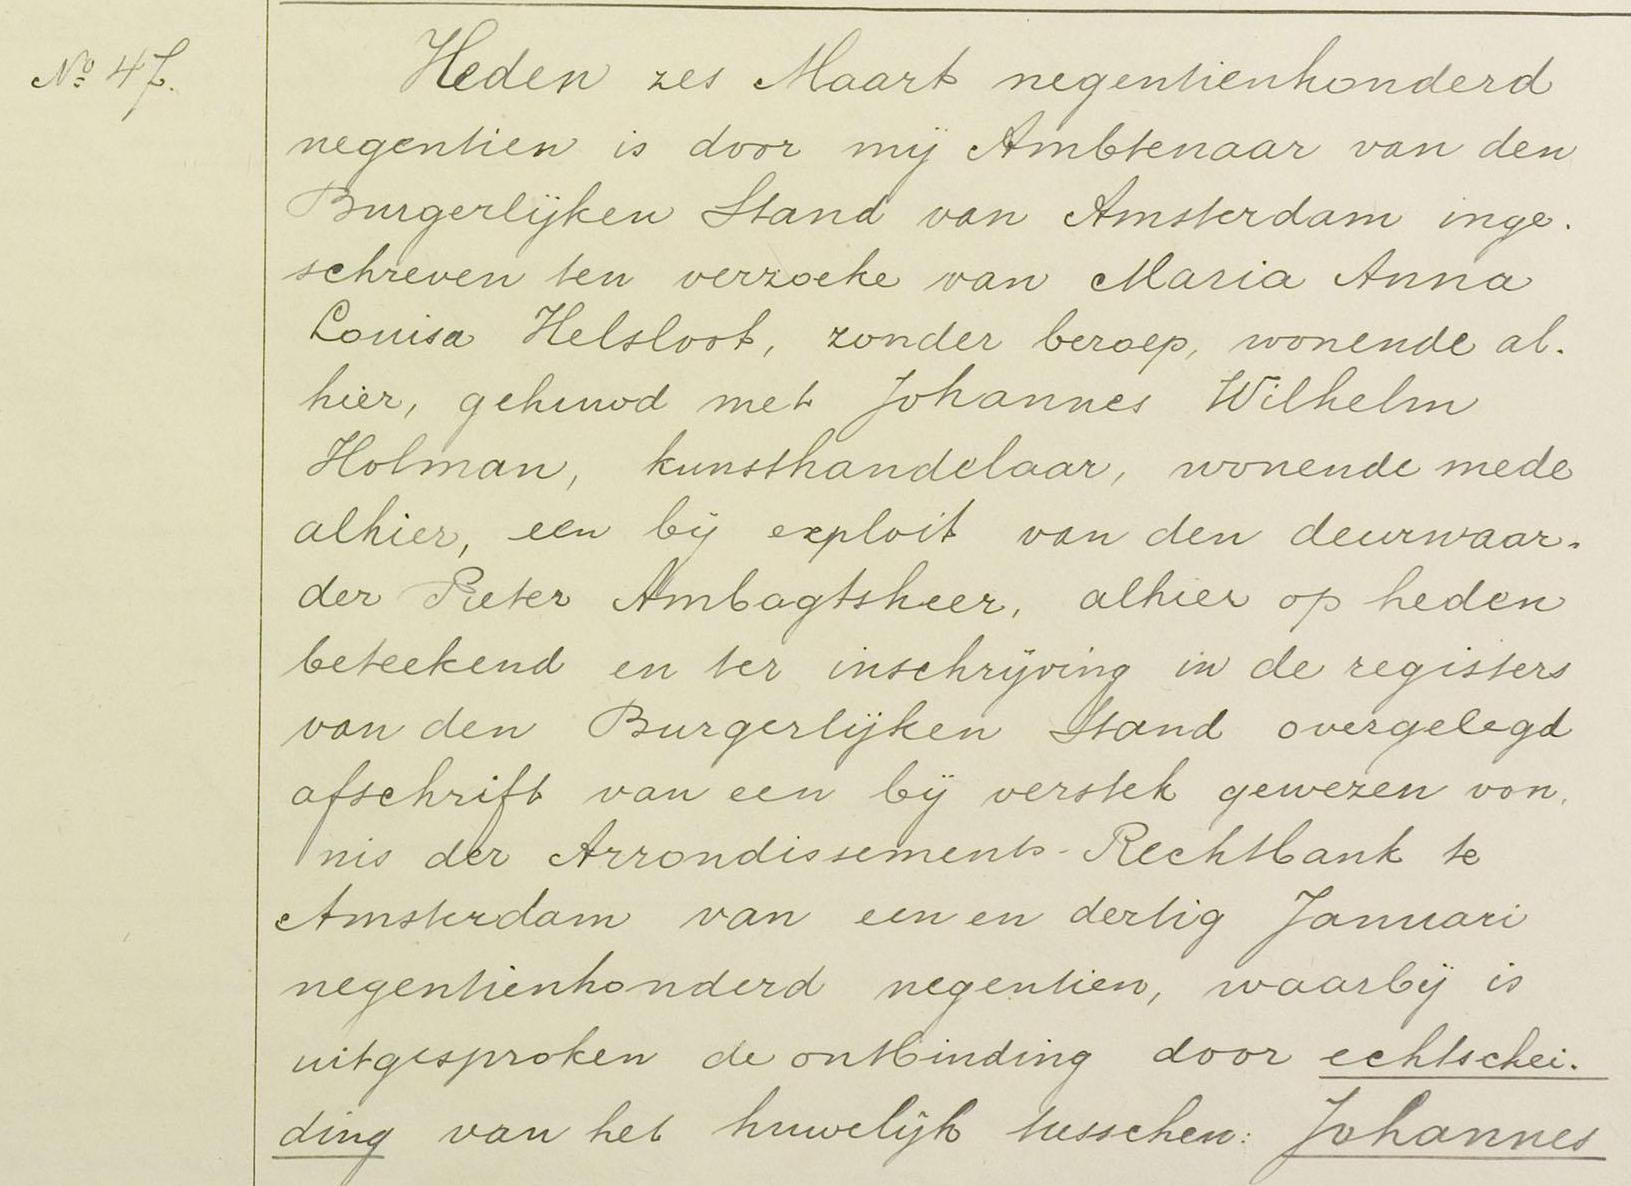 No 47.
Heden zes Maart negentienhonderd
negentien is door mij Ambtenaar van den
Burgerlijken Stand van Amsterdam inge-
schreven ten verzoeke van Maria Anna
Louisa Helsloot, zonder beroep, wonende al-
hier, gehuwd met Johannes Wilhelm
Holman, kunsthandelaar, wonende mede
alhier, een bij exploit van den deurwaar-
der Pieter Ambagtsheer, alhier op heden
beteekend en ter inschrijving in de registers
van den Burgerlijken Stand overgelegd
afschrift van een bij verstek gewezen von-
nis der Arrondissements-Rechtbank te
Amsterdam van een en dertig Januari
negentienhonderd negentien, waarbij is
uitgesproken de ontbinding door echtschei-
ding van het huwelijk tusschen: Johannes